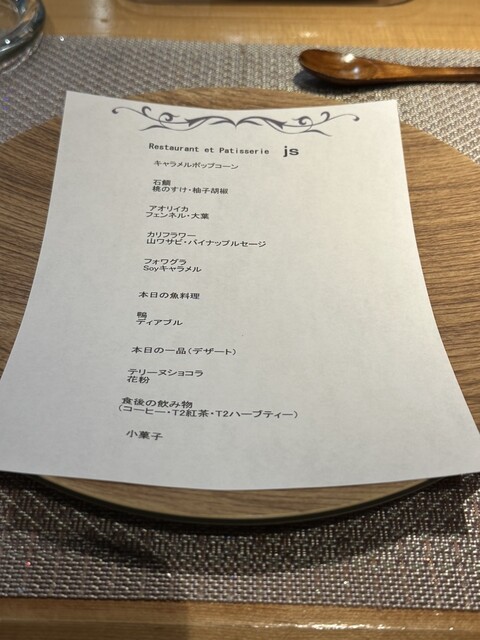 Restaurant et Patisserie js
キャラメルポップコーン
石鯛
桃のすけ・柚子胡椒
アオリイカ
フェンネル・大葉
カリフラワー
山ワサビ・パイナップルセージ
フォワグラ
Soyキャラメル
本日の魚料理
鴨
ディアブル
本日の一品(デザート)
テリーヌショコラ
花粉
食後の飲み物
(コーヒー・T2紅茶・T2ハーブティー)
小菓子